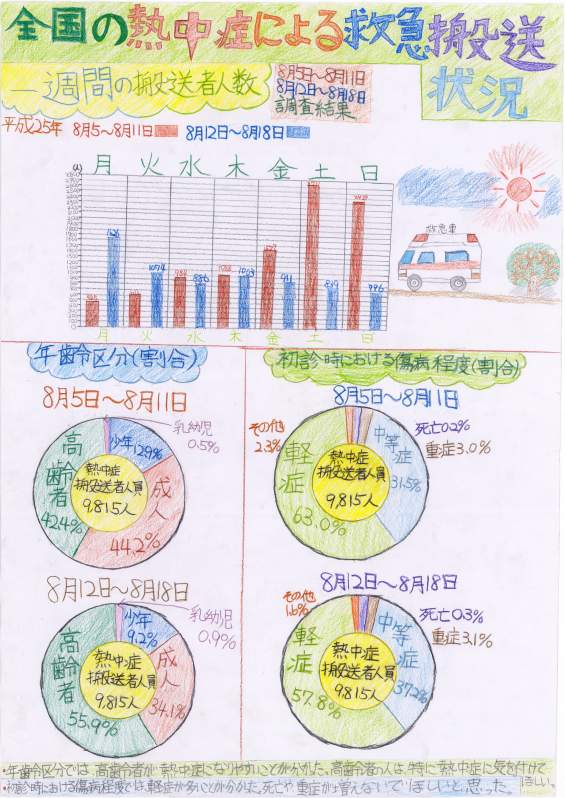 全国の熱中症による救急搬送
状況
一週間の搬送者人数
8月5日～8月11日
8月12日～8月18日
調査結果
平成25年 8月5～8月11日 8月12日～8月18日
(人)
月 火 水 木 金 土 日
1074
886
1003
911
819
996
救急車
月 火 水 木 金 土 日
年齢区分(割合)
8月5日～8月11日
乳幼児
0.5%
少年
12.9%
高齢者
42.4%
成人
44.2%
熱中症
搬送者人員
9,815人
8月12日～8月18日
乳幼児
0.9%
少年
9.2%
高齢者
55.9%
成人
34.1%
熱中症
搬送者人員
9,815人
初診時における傷病程度(割合)
8月5日～8月11日
その他
2.3%
死亡0.2%
重症3.0%
中等症
31.5%
軽症
63.0%
熱中症
搬送者人員
9,815人
8月12日～8月18日
その他
1.6%
死亡0.3%
重症3.1%
中等症
37.2%
軽症
57.8%
熱中症
搬送者人員
9815人
・年齢区分では、高齢者が熱中症になりやすいことが分かった。高齢者の人は、特に熱中症に気を付けて
ほしい。
・初診時における傷病程度では、軽症が多いことが分かった。死亡や重症が増えないでほしいと思った。